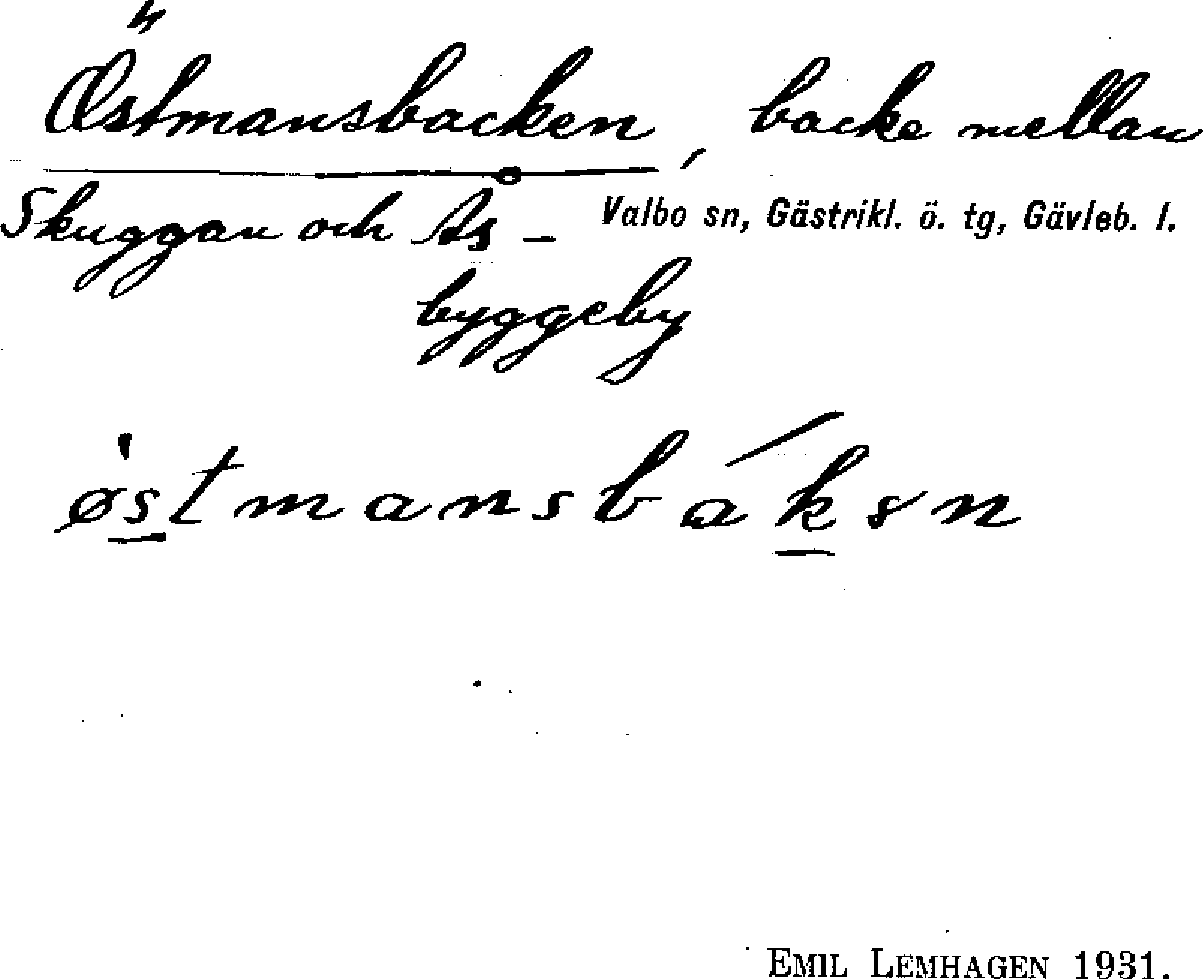 Östmansbacken, backe mellan
Skuggan och Ås-
Valbo sn, Gästrikl. ö. tg, Gävleb. l.
byggeby
ø̀s̲tmansbák̲ən
EMIL LEMHAGEN 1931.